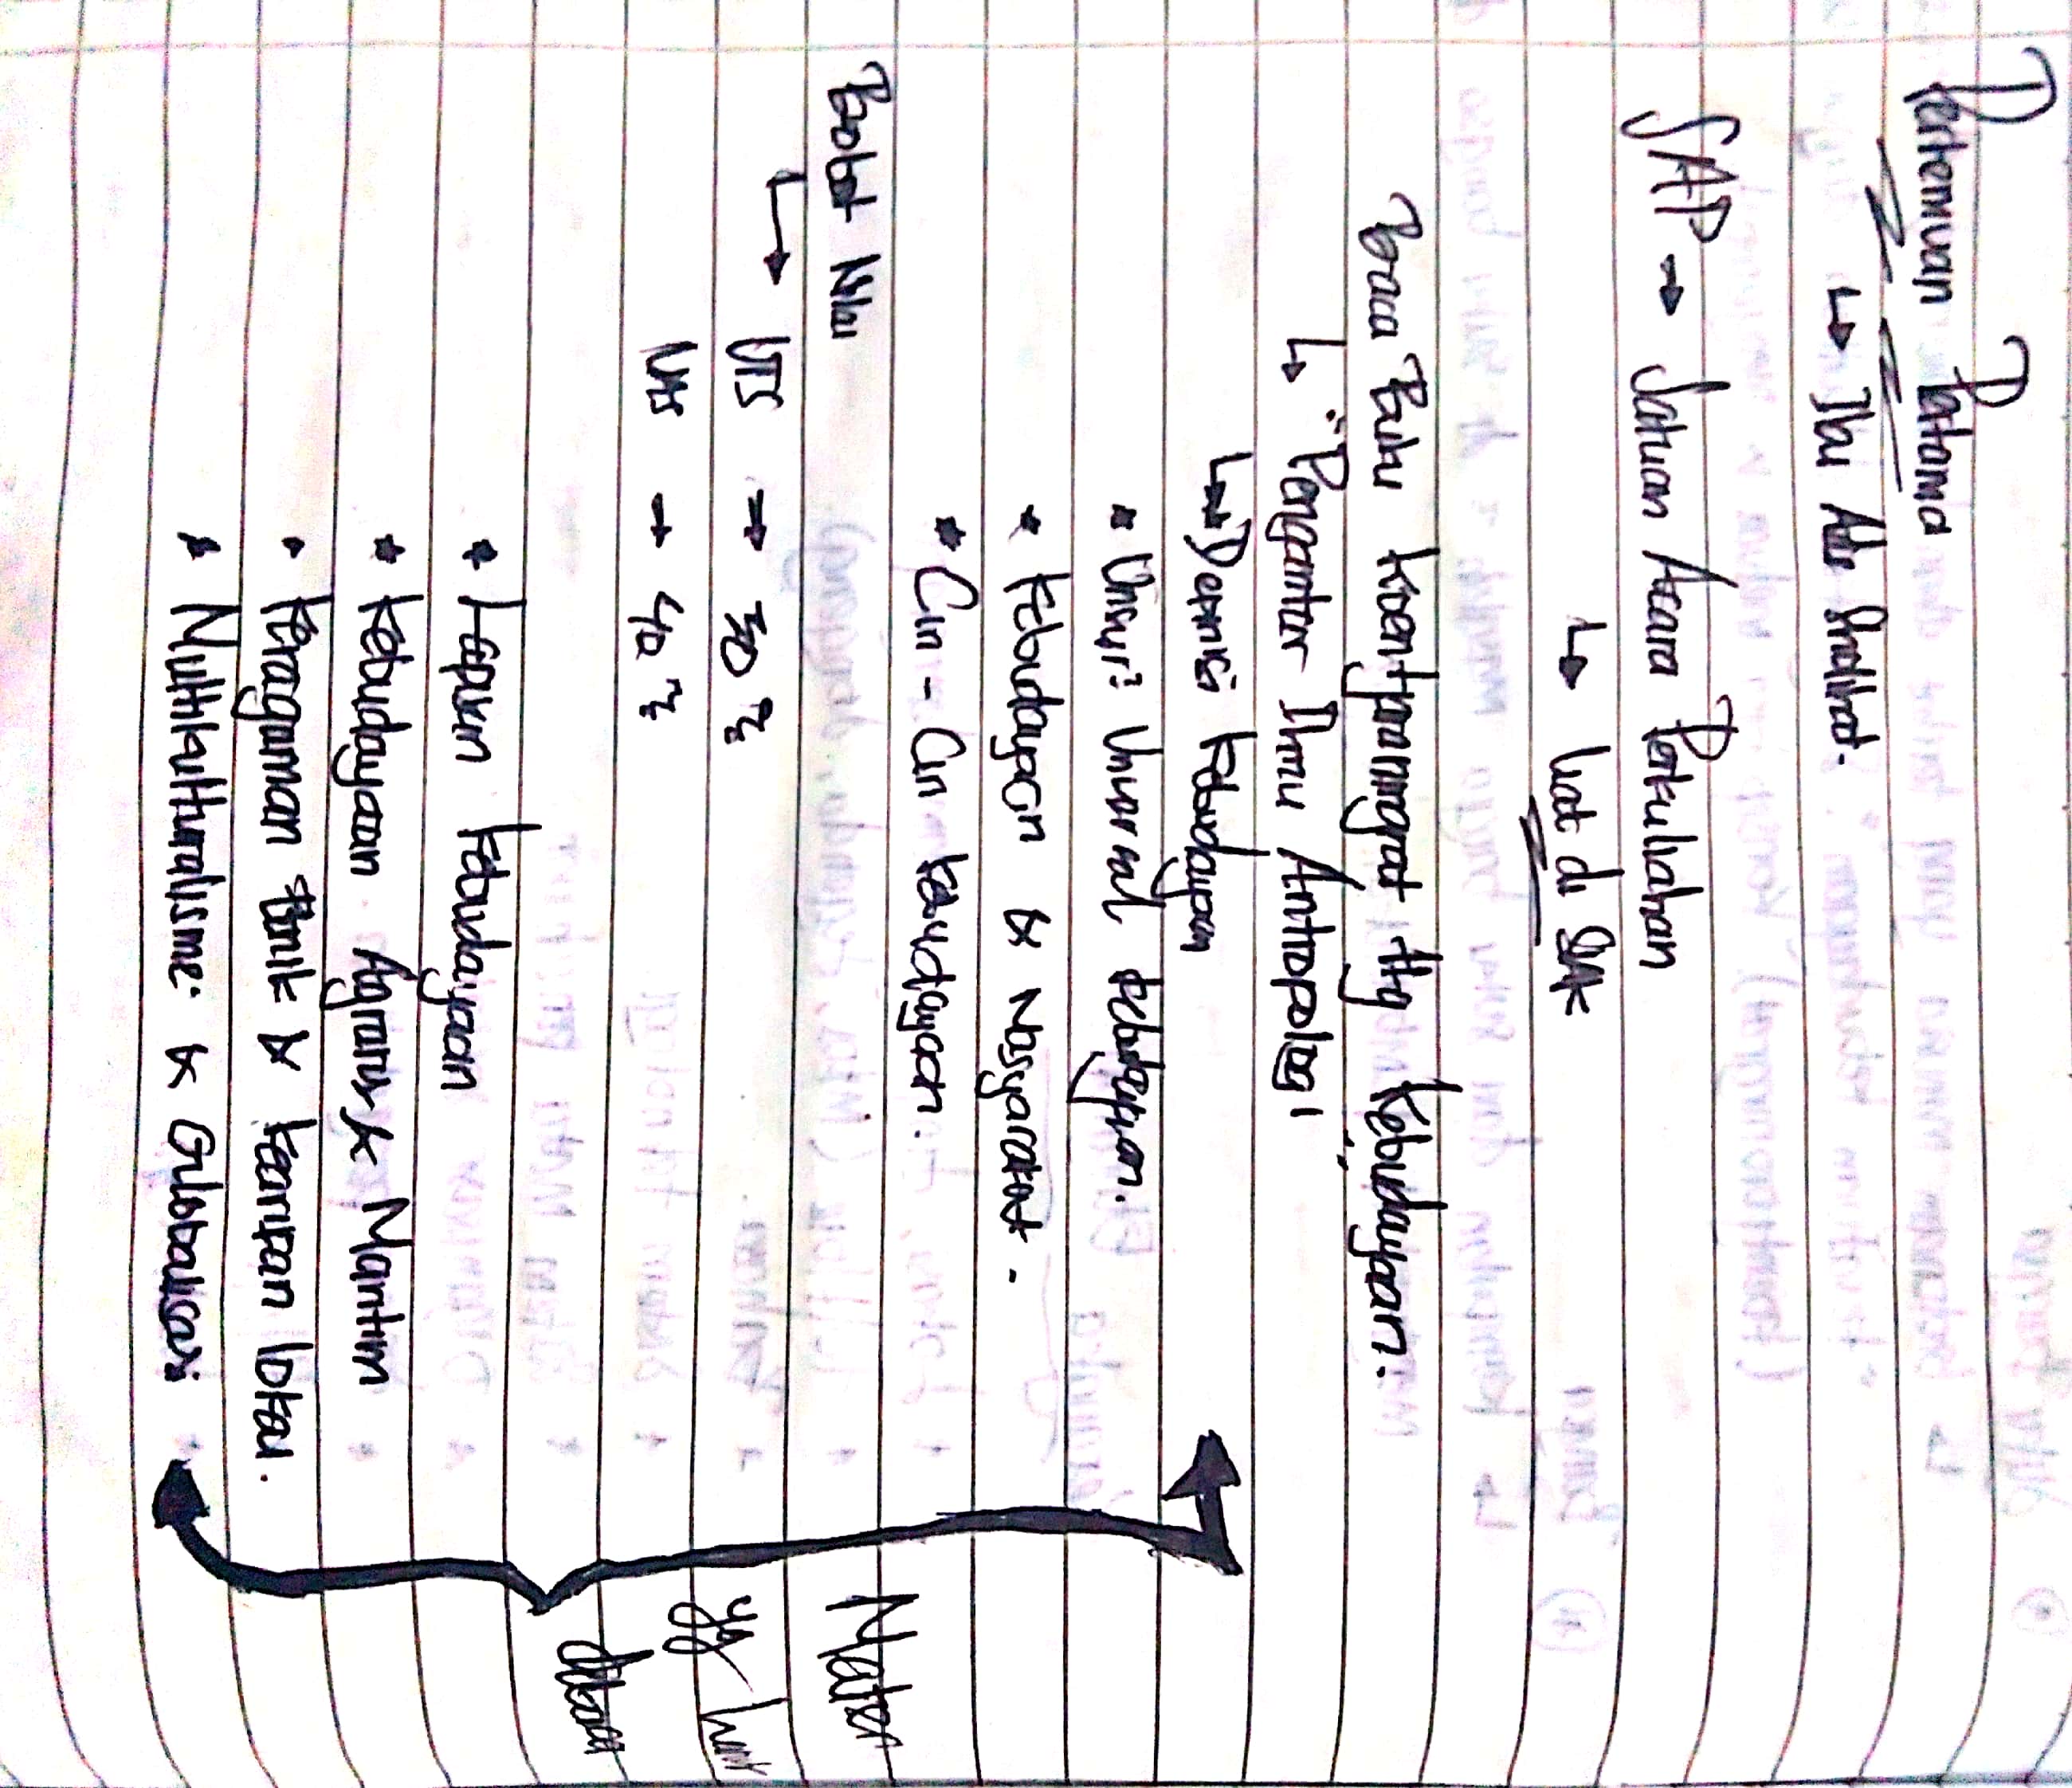 Pertemuan Pertama
↳ Ibu Ade Solihat.
SAP → Satuan Acara Perkuliahan
↳ Liat di SIAK
Baca Buku Koentjaraningrat ttg Kebudayaan.
↳ "Pengantar Ilmu Antropologi
↳ Definisi Kebudayaan
* Unsur² Universal kebudayaan.
* Kebudayaan & Masyarakat.
* Ciri - Ciri kebudayaan.
Bobot Nilai
↳ UTS → 30 %
UAS → 40 %
* Lapisan Kebudayaan
* Kebudayaan Agraris & Maritim
* Keragaman Etnik & Kearifan lokal.
* Multikulturalisme. & Globalisasi
Materi
yg
dibaca